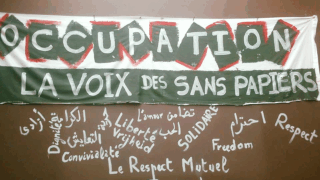 OCCUPATION
LA VOIX DES SANS PAPIERS
الكرامة تضامن احترام
Dignité التعايش Liberté L'amour الحب SOLIDARITÉ Respect
Vrijheid Freedom
Convivialité
Le Respect Mutuel